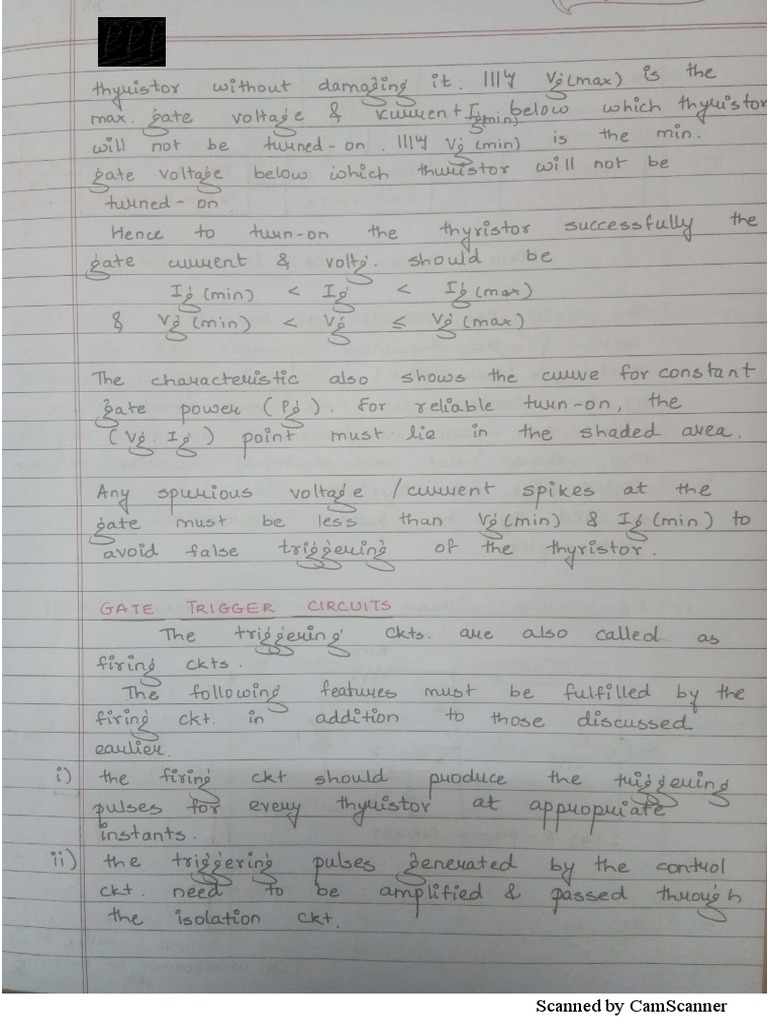 thyristor without damaging it. |||ly Vg(max) is the
max. gate voltage & current Ig(min) below which thyristor
will not be turned-on. |||ly Vg(min) is the min.
gate voltage below which thyristor will not be
turned-on
Hence to turn-on the thyristor successfully the
gate current & voltg. should be
Ig(min) < Ig < Ig(max)
& Vg(min) < Vg ≤ Vg(max)
The characteristic also shows the curve for constant
gate power (Pg). For reliable turn-on, the
(Vg. Ig) point must lie in the shaded area.
Any spurious voltage /current spikes at the
gate must be less than Vg(min) & Ig(min) to
avoid false triggering of the thyristor.
GATE TRIGGER CIRCUITS
The triggering ckts. are also called as
firing ckts.
The following features must be fulfilled by the
firing ckt. in addition to those discussed
earlier.
i) the firing ckt should produce the triggering
pulses for every thyristor at appropriate
instants.
ii) the triggering pulses generated by the control
ckt. need to be amplified & passed through
the isolation ckt.
Scanned by CamScanner